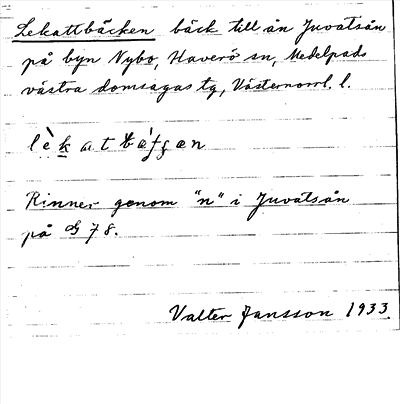 Lekattbäcken bäck till ån Juvatsån
på byn Nybo, Haverö sn, Medelpads
västra domsagas tg, Västernorrl. l.
Rinner genom "n" i Juvatsån
på G 78.
Valter Jansson 1933.